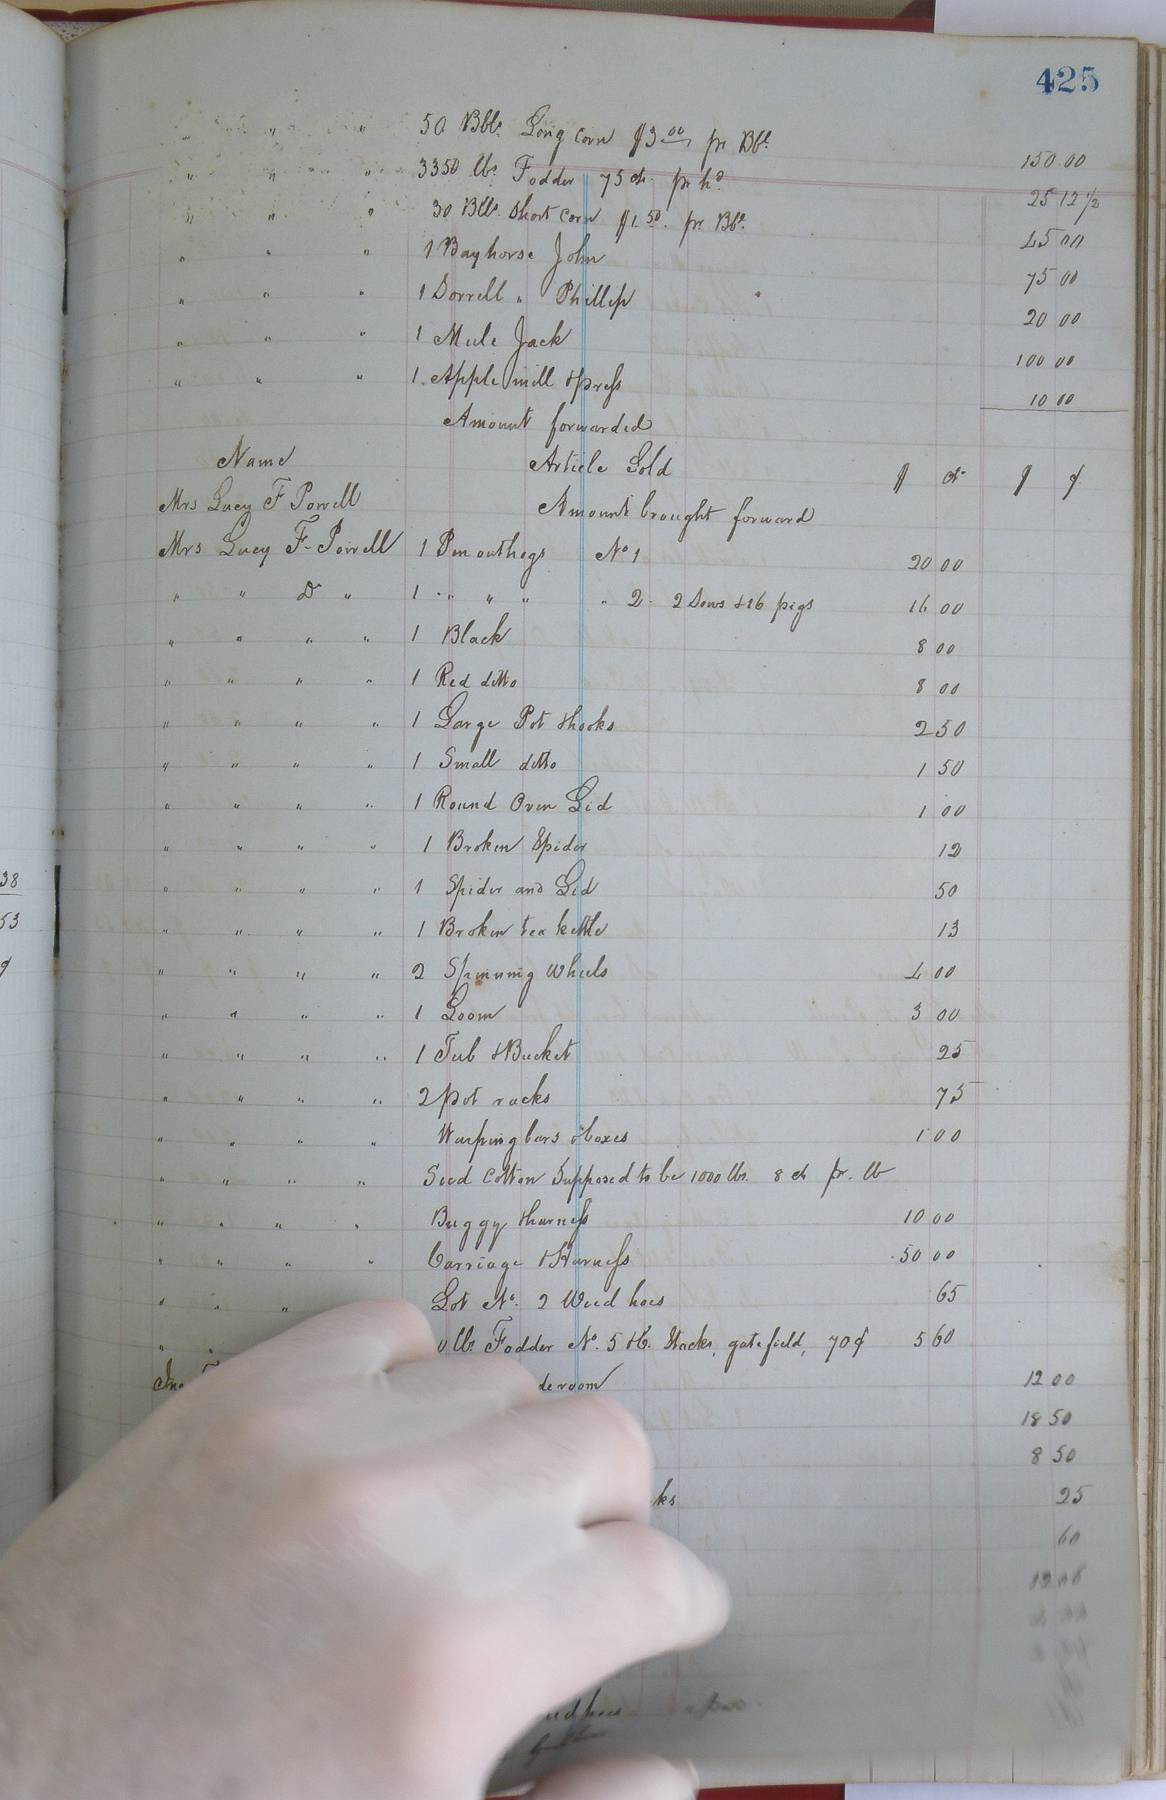 425
" " " 50 Bbls Long corn $3 00 pr Bbl 150.00
" " " 3350 lbs Fodder 75 cts pr hd 25 12 1/2
" " 30 Bbls. Short corn $1.50. pr Bbl. 45 00
" " " 1 Bay horse John 75 00
" " " 1 Sorrell " Phillip 20 00
" " " 1 Mule Jack 100 00
" " " 1 Apple mill & press 10 00
Amount forwarded
Name Article Sold $ cts $ ¢
Mrs Lucy F Powell Amount brought forward
Mrs Lucy F. Powell 1 Pen outhogs No 1 20 00
" " Do " 1 " " " " 2 2 Sows & 16 pigs 16 00
" " " " 1 Black 8 00
" " " " 1 Red ditto 8 00
" " " " 1 Large Pot & hooks 2 50
" " " " 1 Small ditto 1 50
" " " " 1 Round Oven Lid 1 00
" " " " 1 Broken Spider 12
" " " " 1 Spider and Lid 50
38
" " " " 1 Broken tea kettle 13
53
" " " " 2 Spinning Wheels 4 00
" " " " 1 Loom 3 00
" " " " 1 Tub & Bucket 25
" " " " 2 pot racks 75
" " " " Warping bars & boxes 1 00
" " " " Seed Cotton Supposed to be 1000 lbs. 8 cts pr. lb
" " " " Buggy & harness 10 00
" " " " Carriage & Harness 50 00
" " " Lot No. 2 Weed hoes 65
" " 0 lbs Fodder No. 5 & 6. Stacks, gate field, 70¢ 5 60
deroom 12 00
18 50
8 50
ks 25
60
12 00